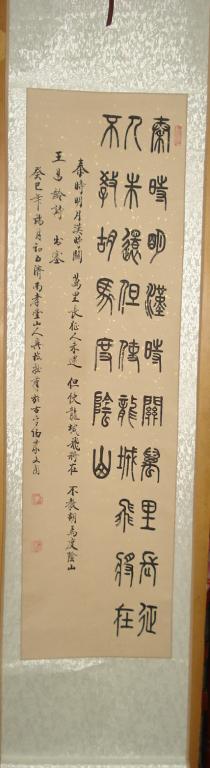 秦時明漢時關萬里長征
人未還但使龍城飛將在
不教胡馬度陰山
秦時明月漢時關 萬里長征人未還 但使龍城飛將在 不教胡馬度陰山
王昌齡詩 出塞
癸巳年 月初 濟南 山人